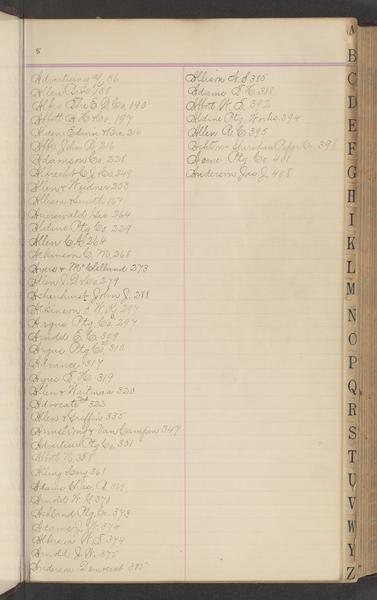 8
Advertising 106
Allen 138
Albes The E D Co 190
Abbott & Co 197
Alden Edwin & Bro 216
Abbe John B. 216
Adamson Co 228
Albrecht C J Co 249
Allen & Weidner 253
Allison & Smith 167
Auerswald Geo 264
Aldine Ptg Co 229
Allen C H 264
Atkinson C. M. 268
Ayers & McClelland 273
Allen J. D. Co 279
Achenhurst John J. 288
Atkinson W H 297
Argus Ptg Co 297
Arnold E C 309
Argus Ptg Co 310
Advance 317
Ayres E H 319
Allen & Waitman 320
Advocate 323
Allen & Griffin 335
Armstrong & Van Campen 347
Advertiser Ptg Co. 351
Abbott N. 358
Alling & Cory 361
Adams Chas. A 369
Arnold H G 370
Ashland Ptg Co 373
Adams J. W. 374
Albin W S 374
Arnold J. W. 375
Anderson Demorest 385
Allison N S 385
Adams E H 318
Abbott W. E. 392
Aldine Ptg. Works 394
Allen A C 395
Paper Co. 398
Acme Ptg Co 401
Anderson Jas J 408
A
B
C
D
E
F
G
H
I
K
L
M
N
O
P
Q
R
S
T
U
V
W
Y
Z